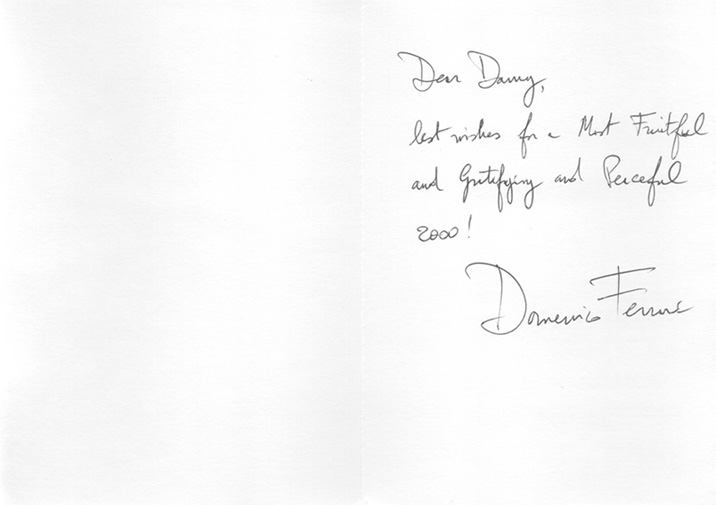 Dear Danny,
best wishes for a Most Fruitful
and Gratifying and Peaceful
2000!
Domenico Ferrari